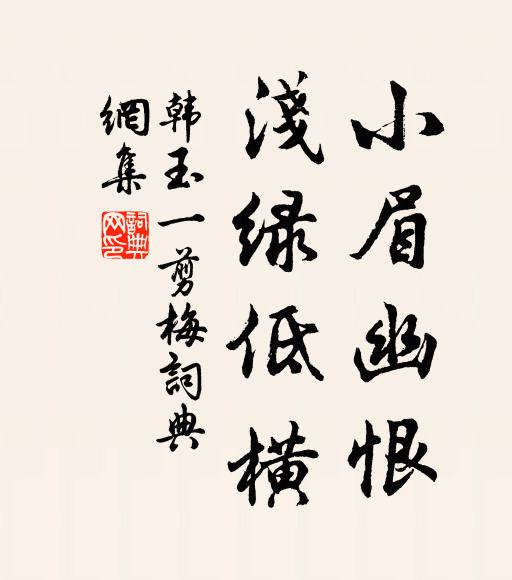 小眉幽恨
淺绿低横
韩玉一剪梅詞典
網集
詞典
网印